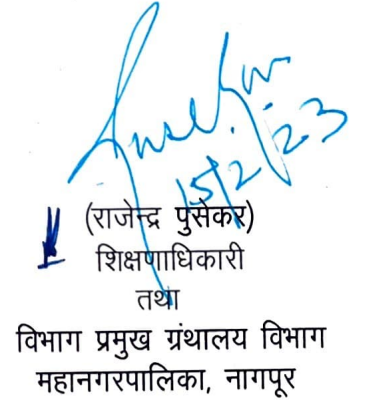 Pusekar
15/2/23
(राजेन्द्र पुसेकर)
शिक्षणाधिकारी
तथा
विभाग प्रमुख ग्रंथालय विभाग
महानगरपालिका, नागपूर